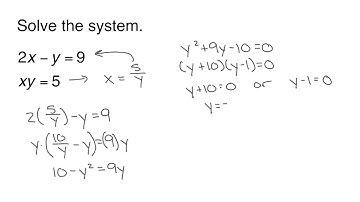 Solve the system.
2x – y = 9
xy = 5 → x = 5/y
2(5/y) - y = 9
y·(10/y - y) = (9)y
10 - y² = 9y
y² + 9y - 10 = 0
(y + 10)(y - 1) = 0
y + 10 = 0 or y - 1 = 0
y = -